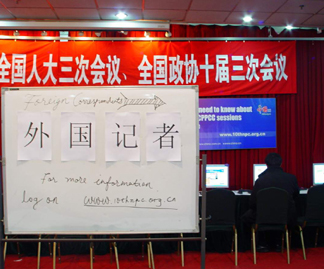 全国人大三次会议、全国政协十届三次会议
need to know about
CPPCC sessions
www.10thnpc.org.cn
Foreign Correspondents
外国记者
For more information
log on www.10thnpc.org.cn